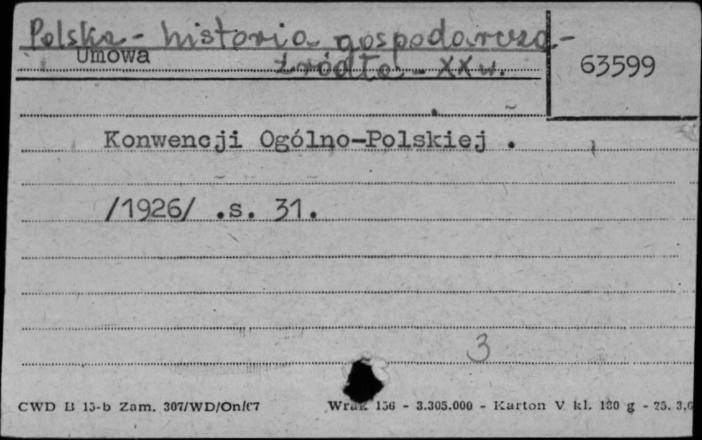 Polska - historia gospodarcza -
Umowa źródła - XX w.
63599
Konwencji Ogólno-Polskiej .
/1926/ .s. 31.
3
CWD B 15-b Zam. 307/WD/On/67 Wrak 156 - 3.305.000 - Karton V kl. 180 g - 25. 3,6